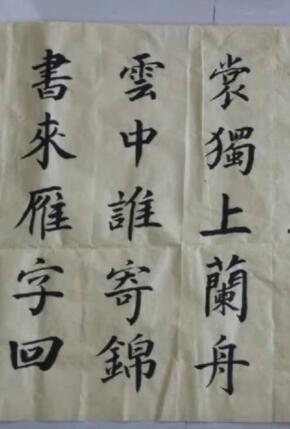 裳獨上蘭舟
雲中誰寄錦
書來雁字回